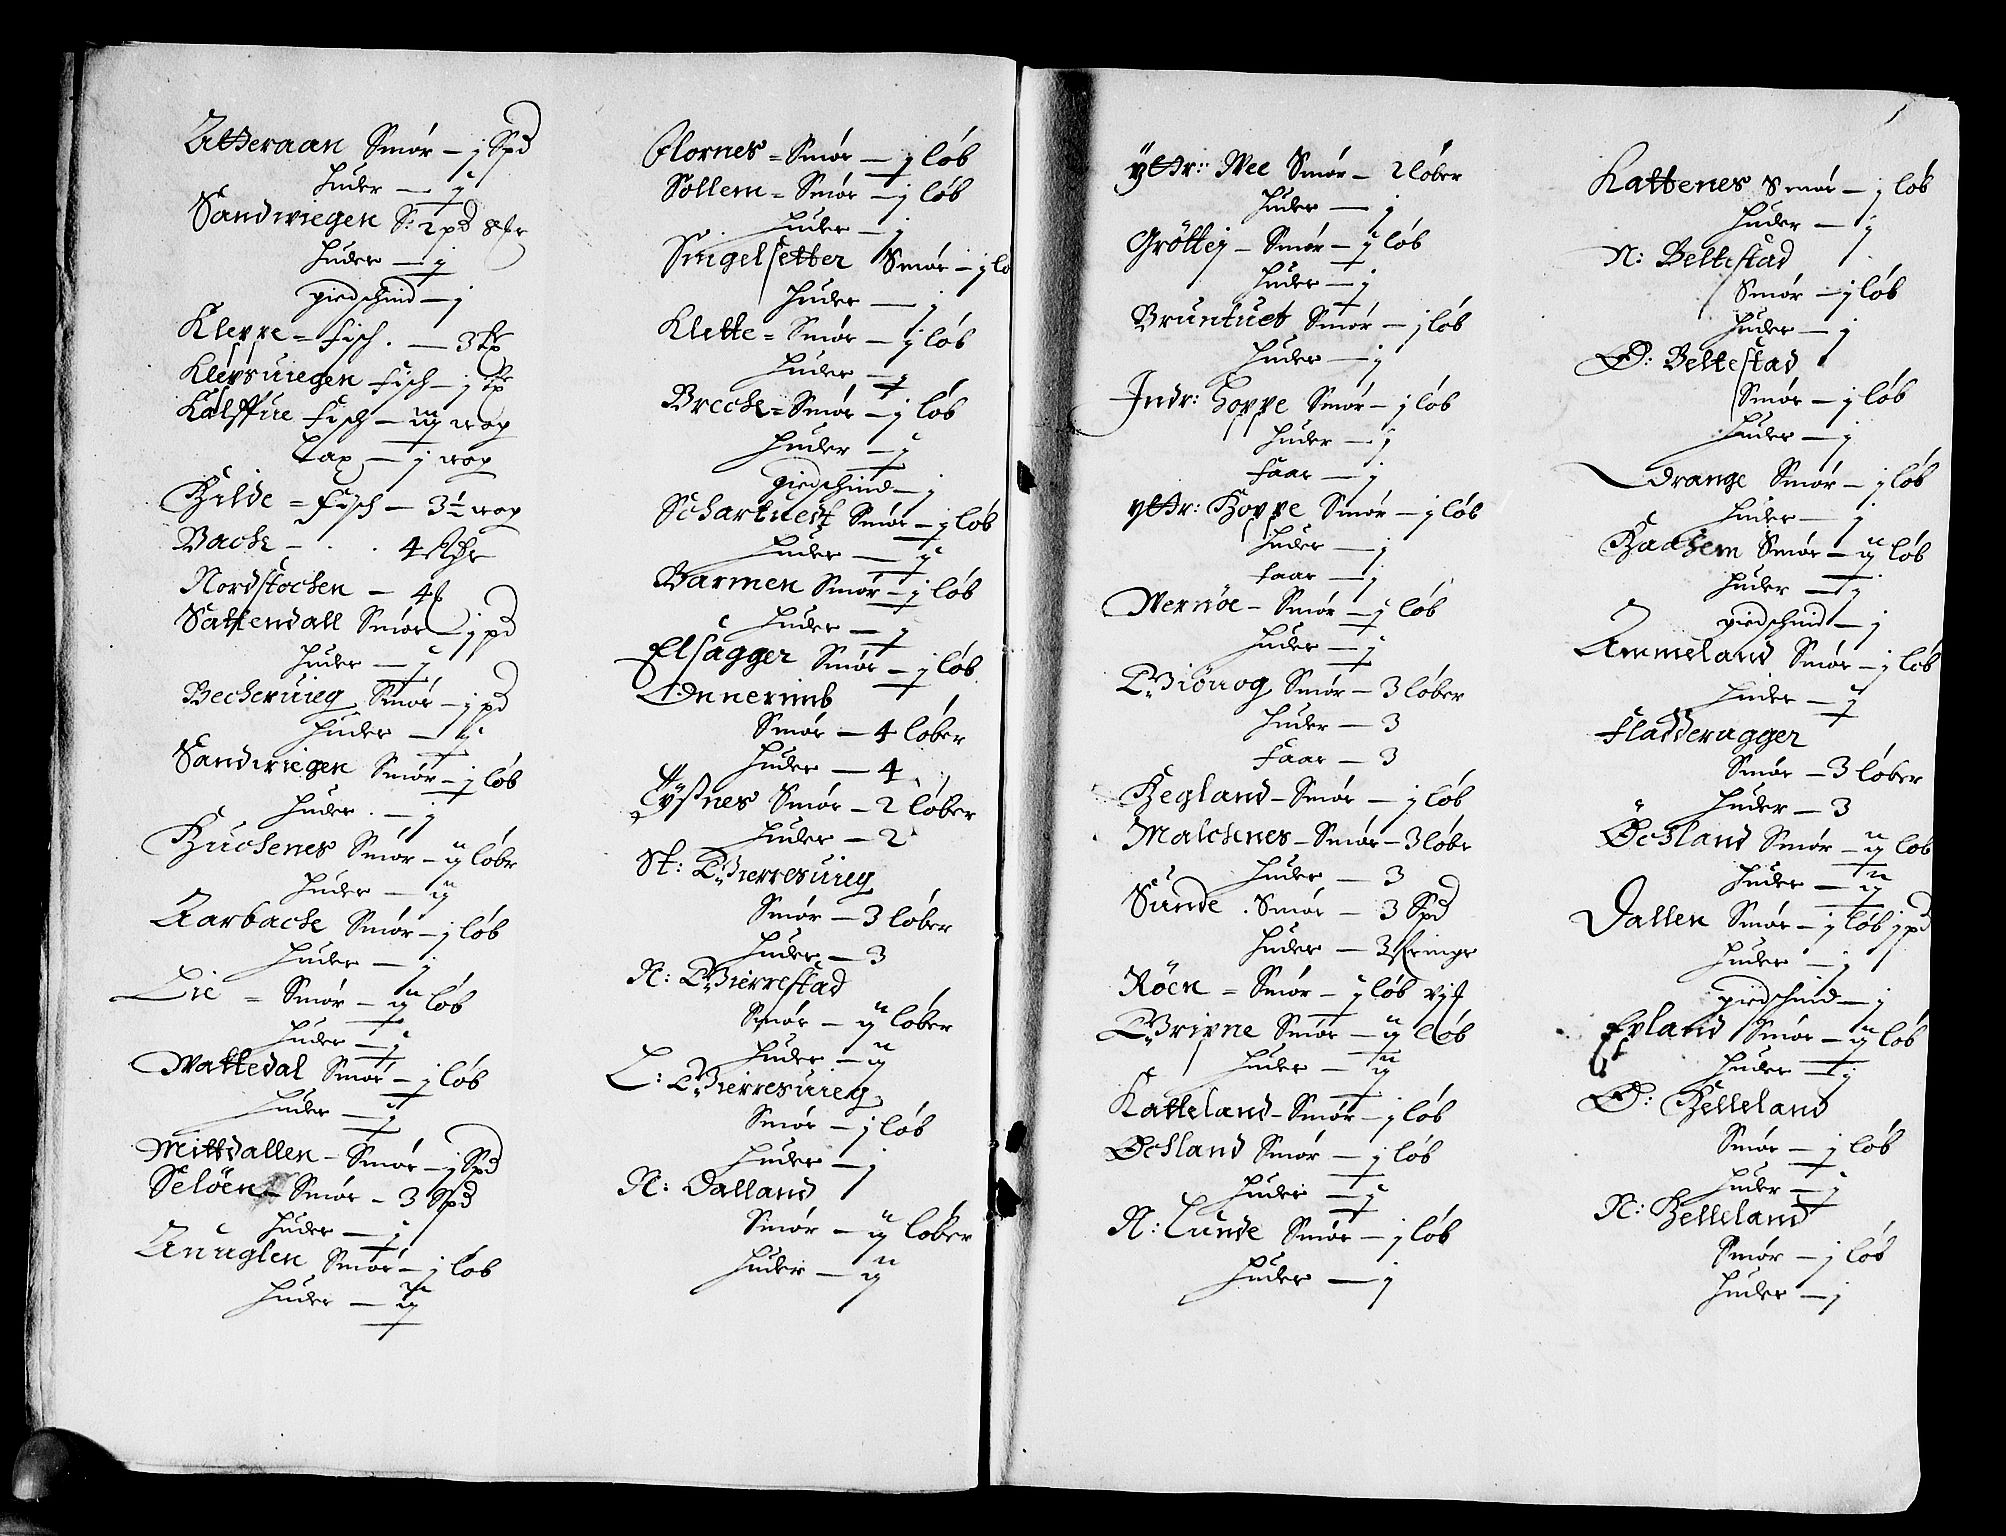 Atteraan Smör — j Spd
Huder — j
Sandwiegen S: 2 pd 8
Huder — j
giedschind — j
Kleppe = Fisch . — 3
Klepsuiegen Fisch — j
Kalffue Fisch — iij wog
Lax — j wog
Hilde = Fisch — 3½ wog
Bache — . . 4
Nordstochen — 4
Sattendall Smör — j pd
Huder — j
Becheruieg Smör — j pd
Huder — j
Sandwiegen Smör — j löb
Huder . — j
Huchenes Smör — ij löbr
Huder — ij
Aarbache Smör — j löb
Huder — j
Lie = Smör — ij löb
Huder — j
Wattedal Smör — j löb
Huder — j
Mittdallen — Smör — j Spd
Selöen — Smör — 3 Spd
Huder — j
Anuglen Smör — j löb
Huder — ij
Flornes = Smör — j löb
Sollem = Smör — j löb
Huder — j
Singelsetter Smör — j lö
Huder — j
Klette = Smör — j löb
Huder — j
Breche = Smör — j löb
Huder — j
giedschind — j
Schartuedt Smör — j löb
Huder — j
Warmen Smör — j löb
Huder — j
Elsagger Smör — j löb
Onnerimb
Smör — 4 löber
Huder — 4
Tyßnes Smör — 2 löber
Huder — 2
St: Gierresuieg
Smör — 3 löber
Huder — 3
N: Gierrestad
Smör — ij löber
Huder — ij
L: Gierresuieg
Smör — j löb
Huder — j
N: Dalland
Smör — ij löber
Huder — ij
Yttr: Wee Smör — 2 löber
Huder — j
Gröttej — Smör — j löb
Huder — j
Bruntuet Smör — j löb
Huder — j
Indr: Hoppe Smör — j löb
Huder — j
Faar — j
Yttr: Hoppe Smör — j löb
Huder — j
Faar — j
Wernöe — Smör — j löb
Huder — j
Giöuog Smör — 3 löber
Huder — 3
Faar — 3
Hegland — Smör — j löb
Malchnes — Smör — 3 löbr
Huder — 3
Sunde . Smör — 3 Spd
Huder — 3
Röen = Smör — j löb
Gripne Smör — ij löb
Huder — ij
Katteland — Smör — j löb
Öchland Smör — j löb
Huder — j
N: Lunde Smör — j löb
Huder — j
Kattenes Smör — j löb
Huder — j
N: Beltestad
Smör — j löb
Huder — j
Ö: Beltestad
Smör — j löb
Huder — j
Drange Smör — j löb
Huder — j
Haachem Smör — ij löb
Huder — j
giedschind — j
Ammeland Smör — j löb
Huder — j
Fladderagger
Smör — 3 löber
Huder — 3
Öchland Smör — ij löb
Huder — ij
Dallen Smör — j löb j pd
Huder — j
giedschind — j
Epland Smör — ij löb
Huder — j
Ö: Helleland
Smör — j löb
Huder — j
N: Helleland
Smör — j löb
Huder — j